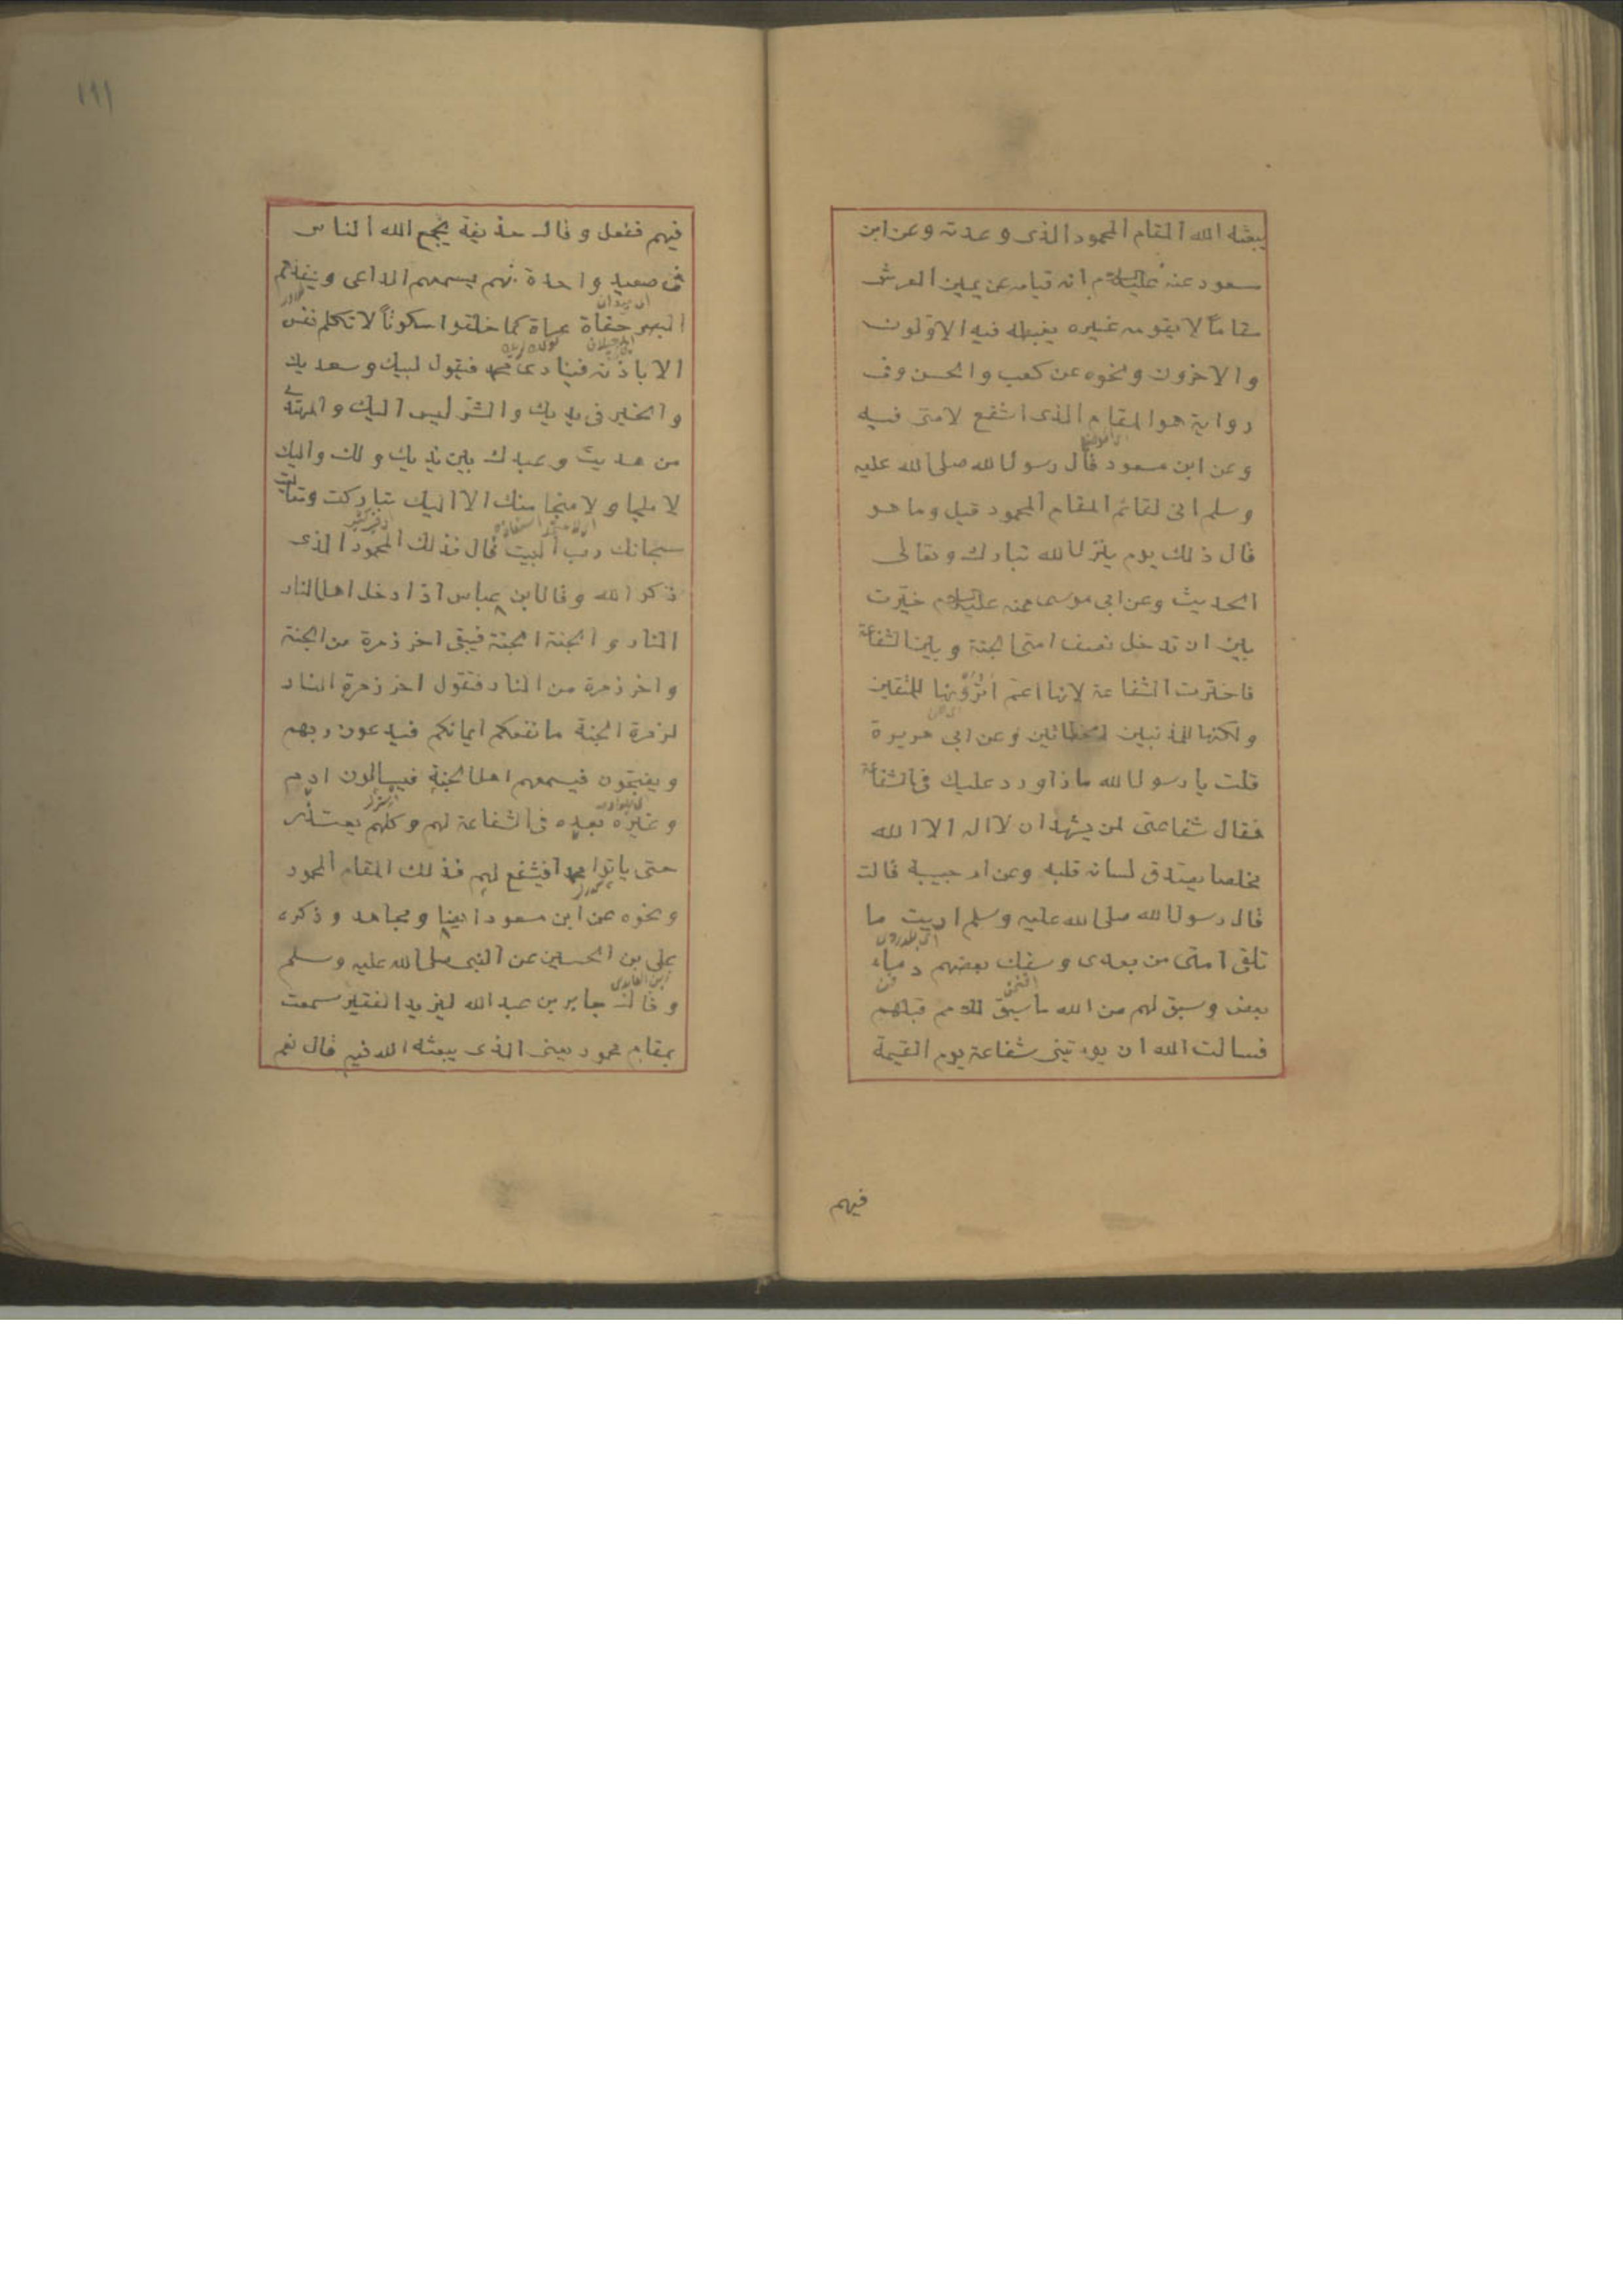 يبعثه الله المقام المحمود الذى وعدته وعن ابن
مسعود عنه عليه السلام انه قيامه عن يمين العرش
مقاماً لا يقومه غيره يغبطه فيه الاوّلون
والاخرون ونحوه عن كعب والحسن وفى
رواية هو المقام الذى اشفع لامتى فيه
وعن ابن مسعود قال رسول الله صلى الله عليه
وسلم انى لقائم المقام المحمود قيل وما هو
قال ذلك يوم ينزل الله تبارك وتعالى
الحديث وعن ابى موسى عنه عليه السلام خيّرت
بين ان يدخل نصف امتى الجنة وبين الشفاعة
فاخترت الشفاعة لانها اعمّ اترونها للمتقين
ولكنها للمذنبين الخطائين وعن ابى هريرة
قلت يا رسول الله ماذا ورد عليك فى الشفاعة
فقال شفاعتى لمن يشهد ان لا اله الا الله
مخلصا يصدق لسانه قلبه وعن ام حبيبة قالت
قال رسول الله صلى الله عليه وسلم اريت ما
تلقى امتى من بعدى وسفك بعضهم دماء
بعض وسبق لهم من الله ما سبق للامم قبلهم
فسالت الله ان يوتينى شفاعة يوم القيمة
فيهم
١٩١
فيهم ففعل وقال حذيفة يجمع الله الناس
فى صعيد واحدة يسمعهم الداعى وينفذهم
البصر حفاة عراة كما خلقوا سكوتاً لا تكلم نفس
الا باذنه فينادى محمد فيقول لبيك وسعديك
والخير فى يديك والشر ليس اليك والمهتدى
من هديت وعبدك بين يديك ولك واليك
لا ملجا ولا منجا منك الا اليك تباركت وتعاليت
سبحانك رب البيت قال فذلك المحمود الذى
ذكر الله وقال ابن عباس اذا دخل اهل النار
النار و الجنة الجنة فيبقى اخر زمرة من الجنة
واخر زمرة من النار فتقول اخر زمرة النار
لزمرة الجنة ما نفعكم ايمانكم فيدعون ربهم
ويضجون فيسمعهم اهل الجنة فيسالون ادم
وغيره بعده فى الشفاعة لهم وكلهم يعتذر
حتى ياتوا محمدا فيشفع لهم فذلك المقام المحمود
ونحوه عن ابن مسعود ايضا ومجاهد وذكره
على بن الحسين عن النبى صلى الله عليه وسلم
زين العابدين
وقال جابر بن عبد الله ليزيد الفقير سمعت
بمقام محمود يعنى الذى يبعثه الله فيه قال نعم